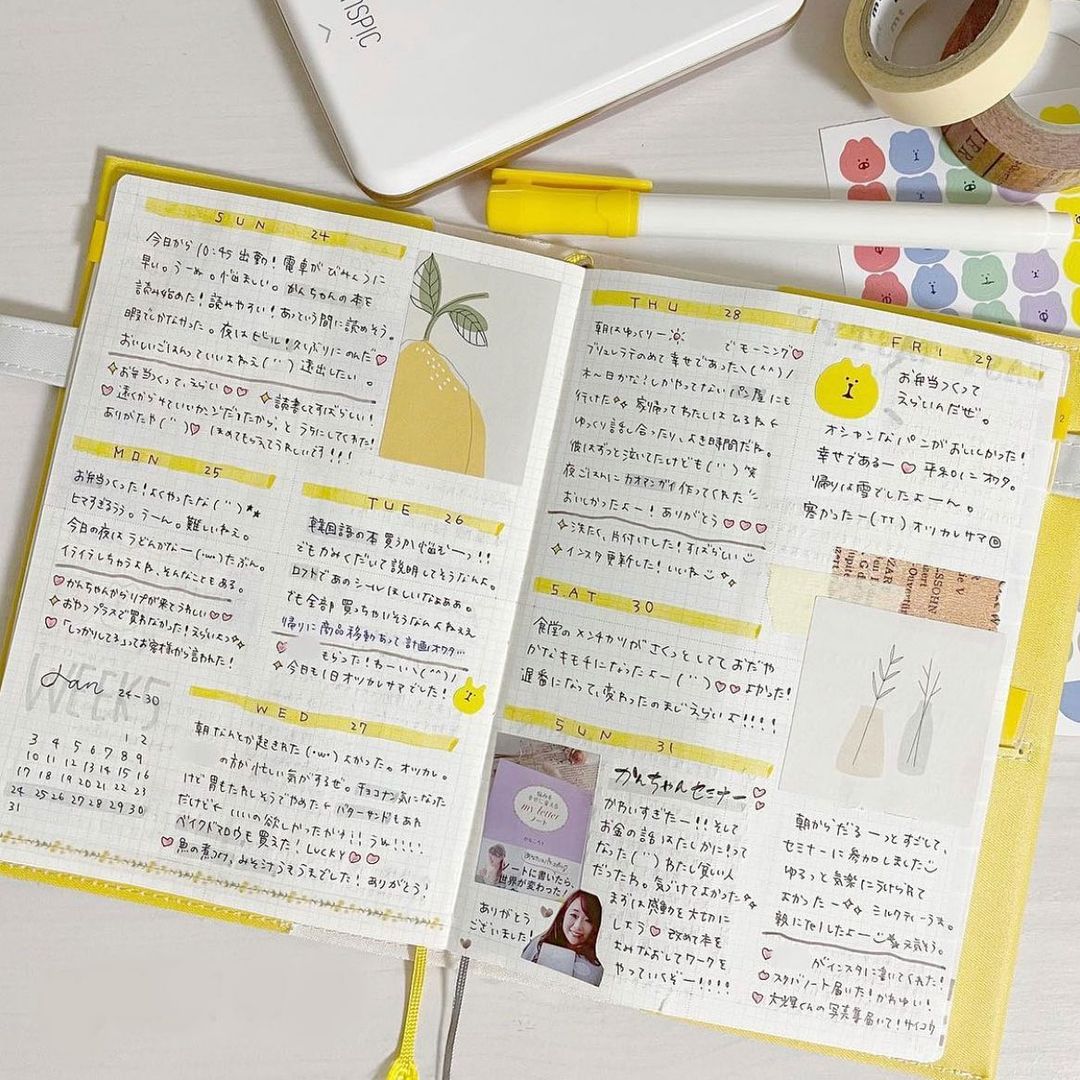 nspic
SUN 24
今日から10:45出勤！電車がびみょうに
早い。うーぬ。悩ましい。かんちゃんの本を
読み始めた！読みやすい！あっという間に読めそう。
暇でしかなかった。夜はビール！久しぶりにのんだ♡
おいしいごはんっていいよねえ(¨)遠出したい。
✧お弁当つくって、えらい♡♡ ✧読書してすばらしい！
♡遠くから来ていいから(¨だ)たから、と うちにしてくれた！
ありがたや(¨)♡ ほめてもらえてうれしいです!!!
MON 25
お弁当つくった！よくやったな(¨)**
ヒマすぎるぅぅ。うーん。難しいねぇ。
今日の夜はうどんかなー(・ω・)たぶん。
イライラしちゃうよね、そんなこともある。
♡かんちゃんからリプが来てうれしい♡♡
✧おやつプラスで買わなかった！えらいよっ✧
♡「しっかりしてる」ってお客様から言われた！
TUE 26
韓国語の本買うか悩むーっ!!
でもかみくだいて説明してそうなんよ。
ロフトであのシールほしいなぁぁぁ。
でも全部買っちゃいそうなんよねぇぇ
帰りに商品移動あって計画オワタ…
もらった！わーい＼(^^)/
✧今日も1日オツカレサマでした！
WEEKS
Jan 24-30
1 2
3 4 5 6 7 8 9
10 11 12 13 14 15 16
17 18 19 20 21 22 23
24 25 26 27 28 29 30
31
WED 27
朝なんとか起きれた(・ω・)よかった。オツカレ。
の方が忙しい気がするぜ。チョコナン気になった
けど胃もたれしそうでやめた バターサンドもあれ
だけど いいの欲しかったがネ!! うぬ!!!!
ベイクドマロウも買えた！LUCKY♡♡
♡魚の煮つけ、みそ汁うまうまでした！ありがとう！
THU 28
朝はゆっくりー でモーニング♡
ブリュレラテのめて幸せであったヽ(^^)/
木〜日かな？しかやってないパン屋にも
行けた✧✧ 家帰ってわたしはひるね
ゆっくり話し合ったり、よき時間だね。
彼はずっと泣いてたけども(¨)笑
夜ごはんにカオマンガイ作ってくれた
おいしかったよー！ありがとう♡♡♡
✧洗たく、片付けした！すばらしい
✧インスタ更新した！いいね ✧✧
FRI 29
お弁当つくって
えらいんだぜ。
オシャンなパンがおいしかった！
幸せであるー♡ 平和にオワタ。
帰りは雪でしたよーん。
寒かったー(TT)オツカレサマ
2
SAT 30
食堂のメンチカツがさくっとしてておだや
かなキモチになったよー(¨)♡♡よかった！
遅番になって、変わったのまじえらいよ!!!!
SUN 31
かんちゃんセミナー
かわいすぎたー!!そして
お金の話はたしかに！って
なった(¨)わたし貧しい人
だったわ。気づけてよかった✧✧
まずは感動を大切に
しよう♡改めて本を
よみなおしてワークを
やっていくぞー!!!!
my letter
ノート
ノートに書いたら、
世界が変わった！
ありがとう
ございました！
朝からだるーっとすごして、
セミナーに参加しました
ゆるっと気楽にうけられて
よかったー✧✧ ミルクティーうま。
親にTELしたよー 元気そう。
♡ がインスタに書いてくれた！
スタバノート届いた！かわゆい！
♡大輝くんの写真集届いて！サイコウ